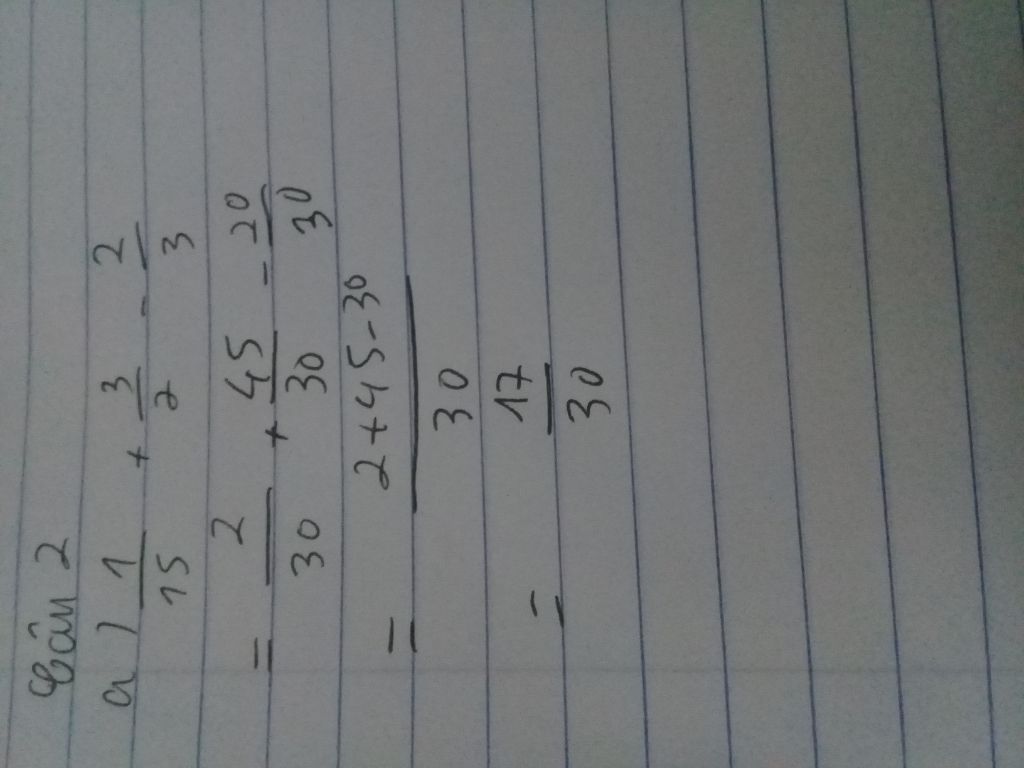 Câu 2
a) 1/15 + 3/2 - 2/3
= 2/30 + 45/30 - 20/30
= 2+45-30/30
= 17/30